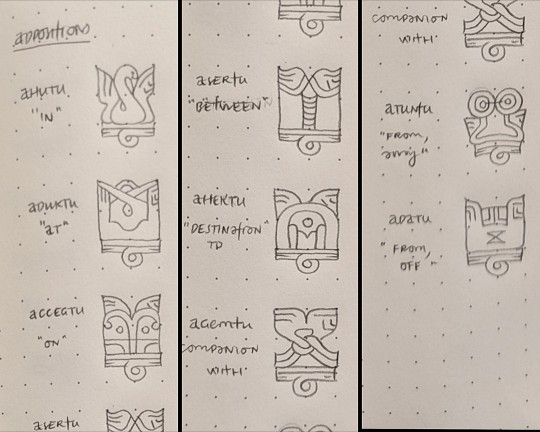 adpositions
aHUTU
"IN"
aDUKTU
"aT"
aCCEGTU
"ON"
aSERTU
aSERTU
"BETWEEN"
aHEKTU
"DESTINaTION"
TO
aGEMTU
COMPANION
WITH
COMPANION
WITH
aTUNTU
"FROM,
away"
aDaTU
"FROM,
OFF"